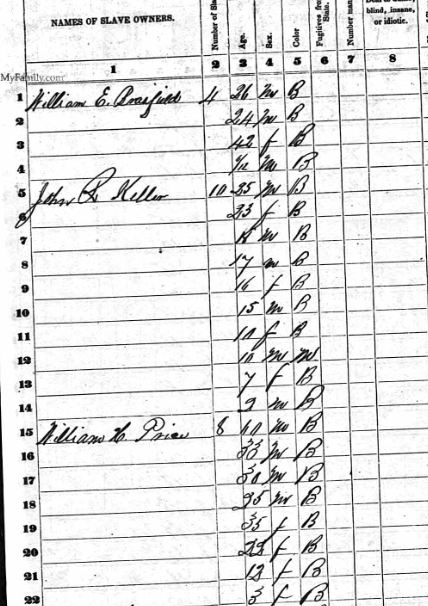 NAMES OF SLAVE OWNERS. Number of Age. Sex. Color Fugitives from State. Number blind, insane, or idiotic.
1 2 3 4 5 6 7 8
MyFamily.com
1 William E. 4 26 m B
2 24 m B
3 42 f B
4 1/12 m B
5 John R Keller 10 25 m B
6 23 f B
7 m B
8 17 m B
9 16 f B
10 15 m B
11 10 f B
12 10 m m
13 7 f B
14 2 m B
15 William H. Price 8 60 m B
16 35 m B
17 30 m B
18 25 m B
19 35 f B
20 22 f B
21 12 f B
22 3 f B